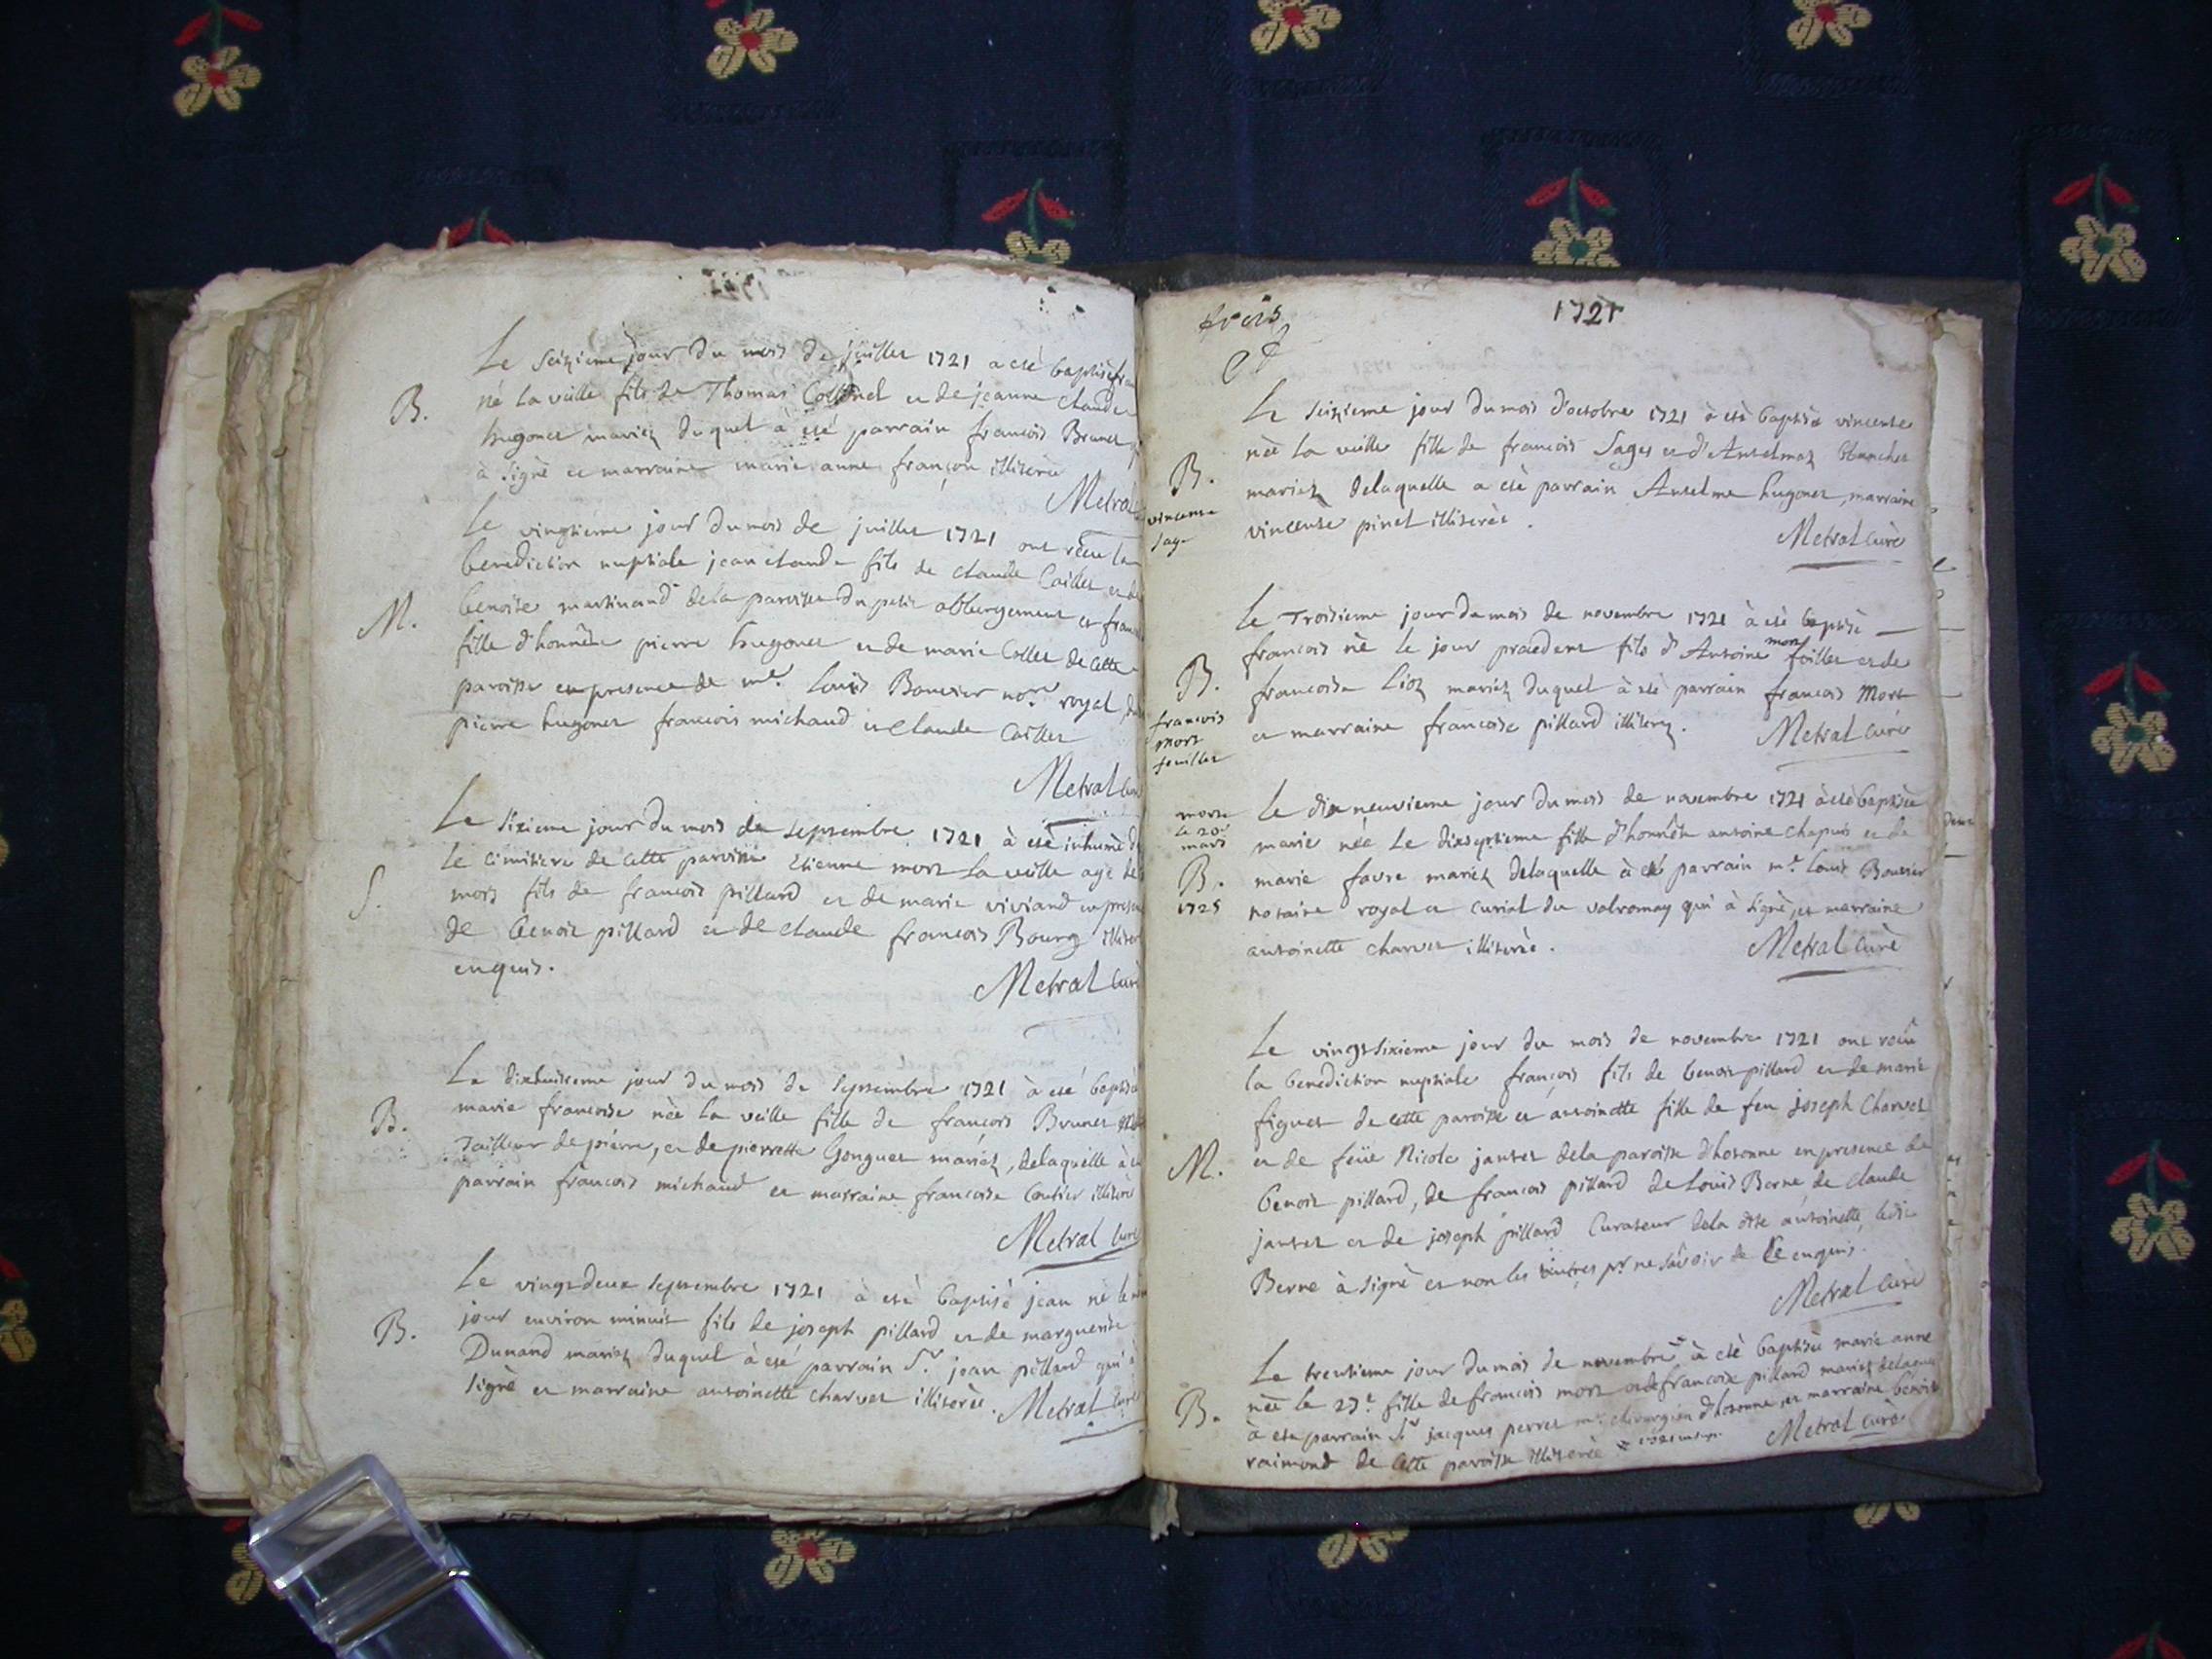 Le Seizieme jour du mois de juillet 1721 a esté baptisé
B.
né la veille fils de Thomas et de jeanne Claude
hugonet mariez duquel à esté parrain francois Brunet
à signé et marraine marie anne françon illiterée
Metral
Le vingtieme jour du mois de juillet 1721 ont réçeu la
benediction nuptiale jean claude fils de claude Caillet et de
M.
benoite martinand de la paroisse du petit abbergement et
fille d'honnête pierre hugonet et de marie Collet de cette
paroisse en presence de me. Loüis Bouvier nore. royal, de
pierre hugonet francois michaud et Claude Caillet
Metral
Le sixieme jour du mois de septembre 1721 à esté inhumé
S.
le cimitiere de cette paroisse Etienne mort la veille agé de
mois fils de francois pillard et de marie viviand en
de benoit pillard et de claude francois Bourg
enquis.
Metral Curé
Le dixhuitieme jour du mois de Septembre 1721 à esté baptisée
B.
marie francoise née la veille fille de francois Brunet
Tailleur de pierre, et de pierrette Gonguet mariez, delaquelle à
parrain francois michaud et marraine francoise illiterés
Metral Curé
Le vingtdeux Septembre 1721 à esté baptisé jean né le
B.
jour environ minuit fils de joseph pillard et de marguerite
Dunand mariez duquel à esté parrain Sr. jean pillard qui à
signé et marraine antoinette charvet illiterée. Metral Curé
1721
Le Seizieme jour du mois d'octobre 1721 à esté baptisée vincente
née la veille fille de francois Sages et d'Anselmaz blanchet
B.
mariez delaquelle a esté parrain Anselme hugonet, marraine
vincente
sage
vincente pinet illiterés.
Metral Curé
Le Troisieme jour du mois de novembre 1721 à esté baptisé
francois né le jour præcedent fils d'Antoine mortfoillet et de
B.
francoise Lioz mariez duquel à esté parrain francois Mort
francois
mort
feuillet
et marraine francoise pillard illiterez.
Metral Curé
morte
le 20e
mars
B.
1725
Le dix neuvieme jour du mois de novembre 1721 à esté baptisée
marie née le dixseptieme fille d'honnête antoine chapuis et de
marie favre mariez delaquelle à esté parrain me. Louis Bouvier
notaire royal et curial du valromay qui à signé, et marraine
antoinette charvet illiterée.
Metral Curé
Le vingtsixieme jour du mois de novembre 1721 ont reçeu
la benediction nuptiale françois fils de benoit pillard et de marie
figuet de cette paroisse et antoinette fille de feu joseph Charvet
M.
et de feüe Nicole jantet dela paroisse d'hotonne en presence de
benoit pillard, de francois pillard de Louis Berne de claude
jantet et de joseph pillard Curateur dela dite antoinette, ledit
Berne à signé et non les autres pr ne sçavoir de ce enquis.
Metral Curé
Le trentieme jour du mois de novembre à esté baptisée marie anne
née le 27e. fille de francois mort et de francoise pillard mariez delaquelle
B.
à esté parrain Sr jacques perret me. chirurgien d'hotonne, et marraine benoite
raimond de cette paroisse illiterée
Metral Curé